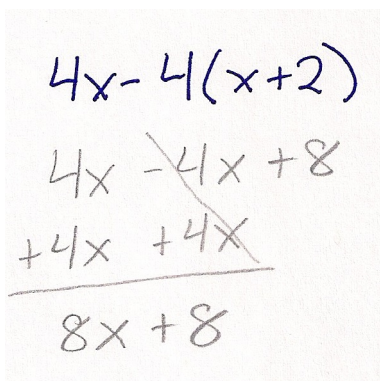 4x-4(x+2)
4x -4x +8
+4x +4x
8x +8